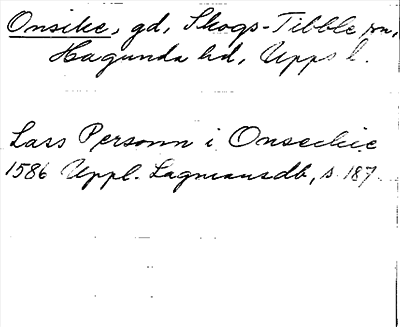 Onsike, gd, Skogs-Tibble sn,
Hagunda hd, Upps l.
Lars Persson i Onsechie
1586 Uppl. Lagmansdb, s. 187